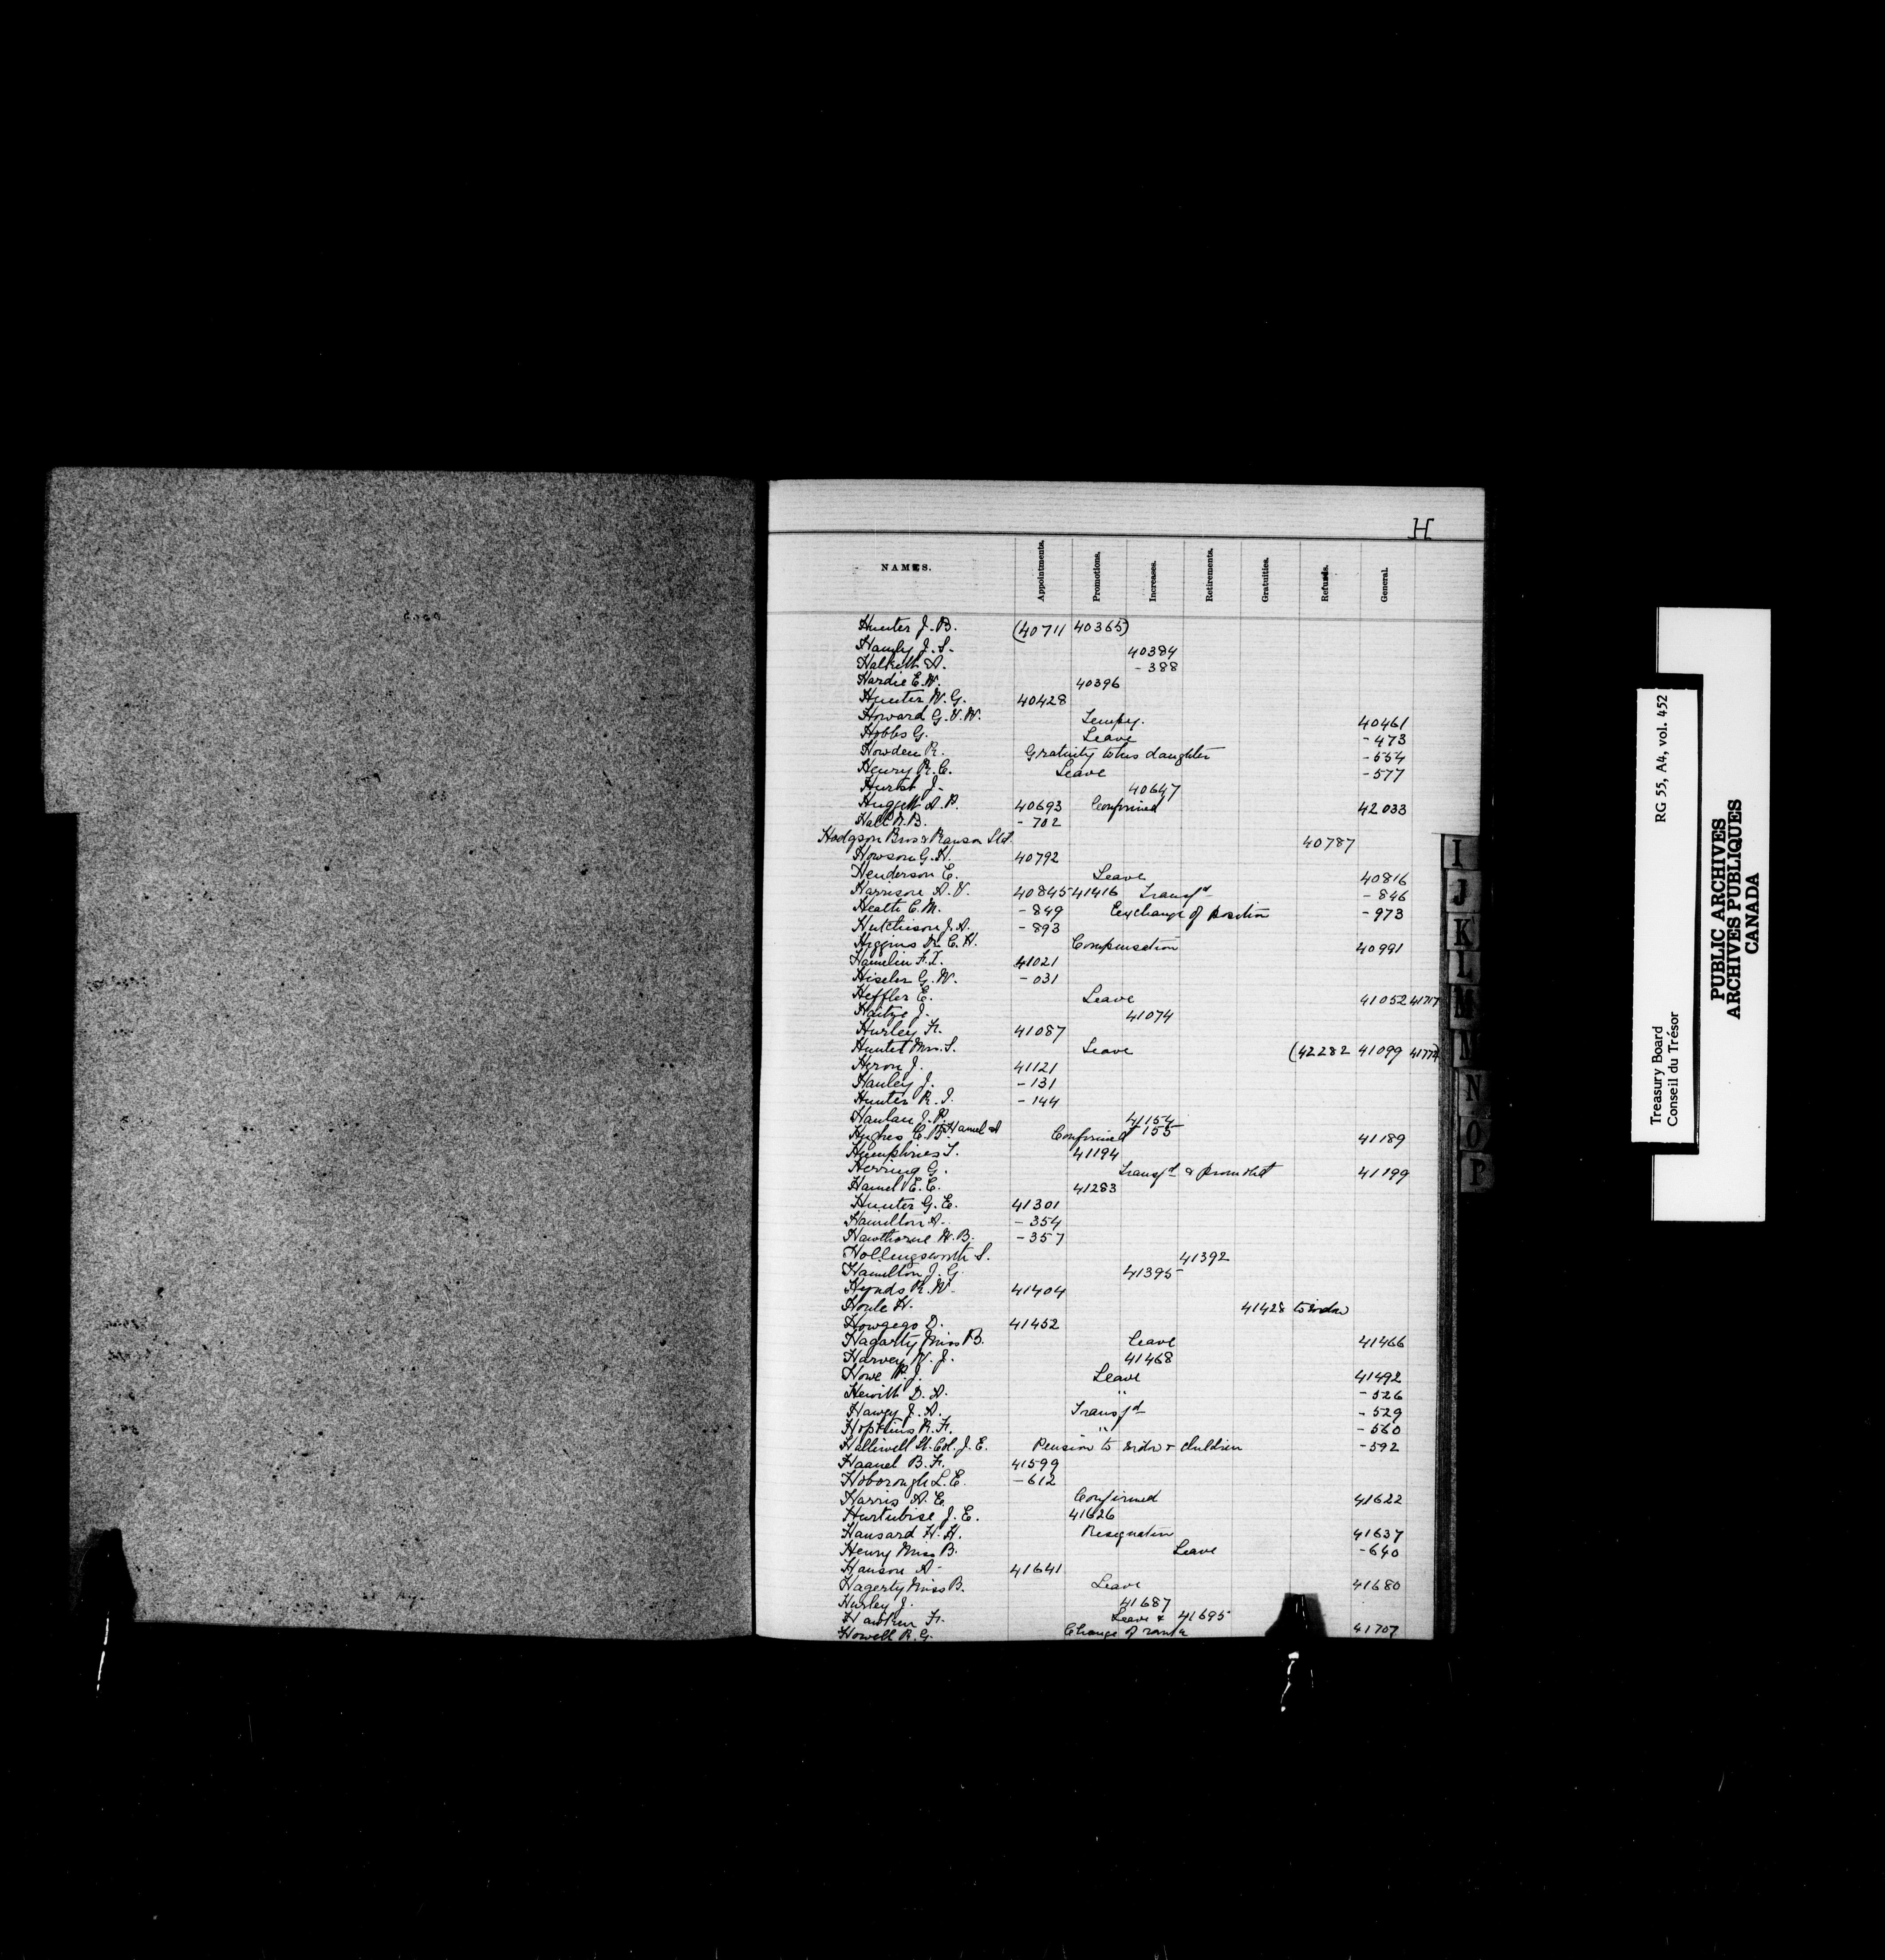 H
NAMES. Appointments. Promotions. Increases. Retirements. Gratuities. Refunds. General.
Hunter J. B. (40711 40365)
J. S. 40384
Halkett A. - 388
Hardie E. W. 40396
Hunter W. G. 40428
Howard G. V. W. Tempy. 40461
Hobbs G. Leave - 473
Howden R. Gratuity to his daughter - 554
Henry R. C. Leave - 577
Hurst J. 40647
Huggett A. P. 40693 Confirmed 42033
Hall R. B. - 702
Hodgson Bros & Ranson Ltd. 40787
Howson G. H. 40792
Henderson E. Leave 40816
Harrison A. V. 40845 41416 Transfd - 846
Heath C. M. - 849 Exchange of position - 973
Hutchison J. A. - 893
Higgins Dr. C. H. Compensation 40991
Hamelin F. I. 41021
Hiseler G. W. - 031
Heffler E. Leave 41052 41717
J. 41074
Hurley F. 41087
Mrs. S. Leave (42282 41099
Heron J. 41121
Hanley J. - 131
Hunter R. J. - 144
Hanlan J. P. 41154
Hughes C. B. Hamel A Confirmed - 155 41189
Humphries T. 41194
Herring G. Transfd & promoted 41199
Hamel E. C. 41283
Hunter G. E. 41301
Hamilton A. - 354
Hawthorne W. B. - 357
Hollingsworth S. 41392
Hamilton J. G. 41395
Hynds R. W. 41404
Houle H. 41428 to widow
Howgego D. 41452
Hagarty Miss B. Leave 41466
Harvey W. J. 41468
Howe P. J. Leave 41492
Hewitt D. A. " - 526
Hawey J. A. Transfd - 529
Hopkins R. F. " - 560
Halliwell Lt. Col. J. E. Pension to widow & children - 592
Haanel B. F. 41599
Hoborough L. E. - 612
Harris A. E. Confirmed 41622
Hurtubise J. E. 41626
Hansard H. H. Resignation 41637
Henry Miss B. Leave - 640
Hanson A. 41641
Hagerty Miss B. Leave 41680
Hurley J. 41687
Hawken F. Leave & 41695
Howell R. G. Change of rank 41707
I
J
K
L
M
N
O
P
Treasury Board RG 55, A4, vol. 452
Conseil du Trésor
PUBLIC ARCHIVES
ARCHIVES PUBLIQUES
CANADA